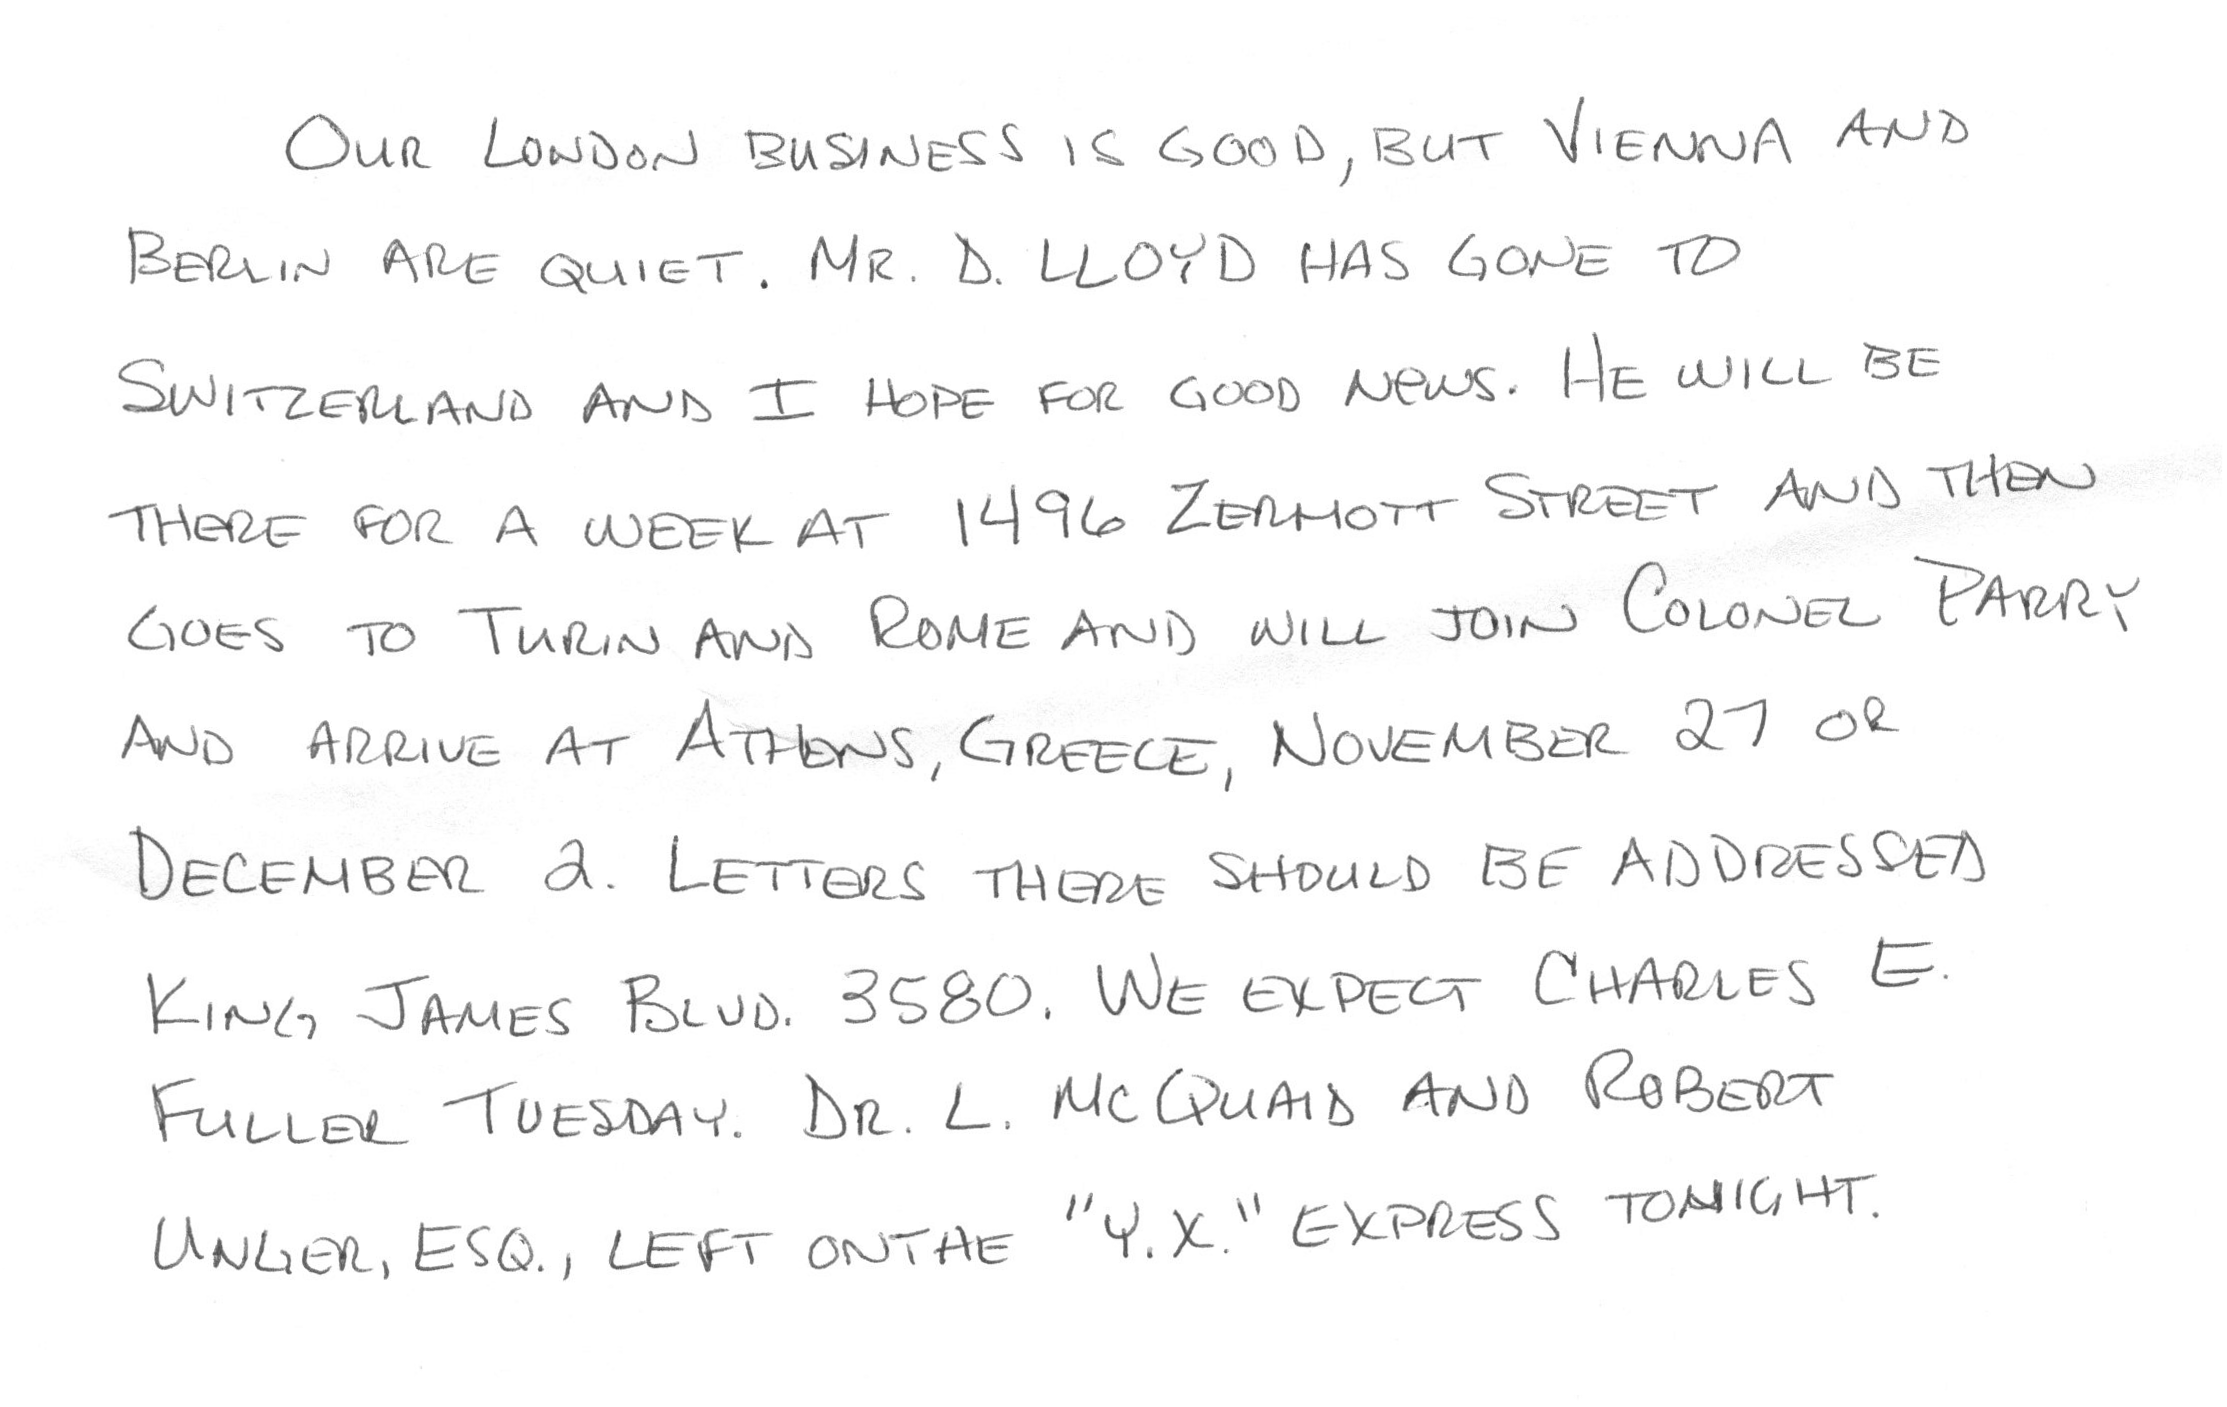 OUR LONDON BUSINESS IS GOOD, BUT VIENNA AND
BERLIN ARE QUIET. MR. D. LLOYD HAS GONE TO
SWITZERLAND AND I HOPE FOR GOOD NEWS. HE WILL BE
THERE FOR A WEEK AT 1496 ZERMOTT STREET AND THEN
GOES TO TURIN AND ROME AND WILL JOIN COLONEL PARRY
AND ARRIVE AT ATHENS, GREECE, NOVEMBER 27 OR
DECEMBER 2. LETTERS THERE SHOULD BE ADDRESSED
KING JAMES BLVD. 3580. WE EXPECT CHARLES E.
FULLER TUESDAY. DR. L. MCQUAID AND ROBERT
UNGER, ESQ., LEFT ON THE "Y.X." EXPRESS TONIGHT.